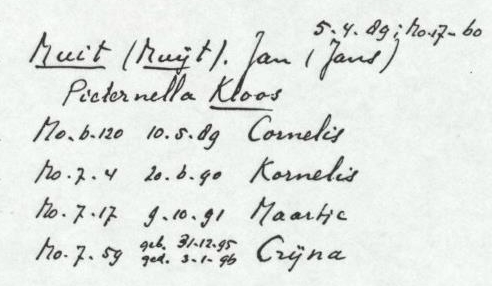 5.4.89; Mo.17-60
Muit (Muijt). Jan (Jans)
Pieternella Kloos
Mo.6.120 10.5.89 Cornelis
Mo.7.4 20.6.90 Kornelis
Mo.7.17 9.10.91 Maartje
Mo.7.59 geb. 31-12-95 ged. 3-1-96 Crijna